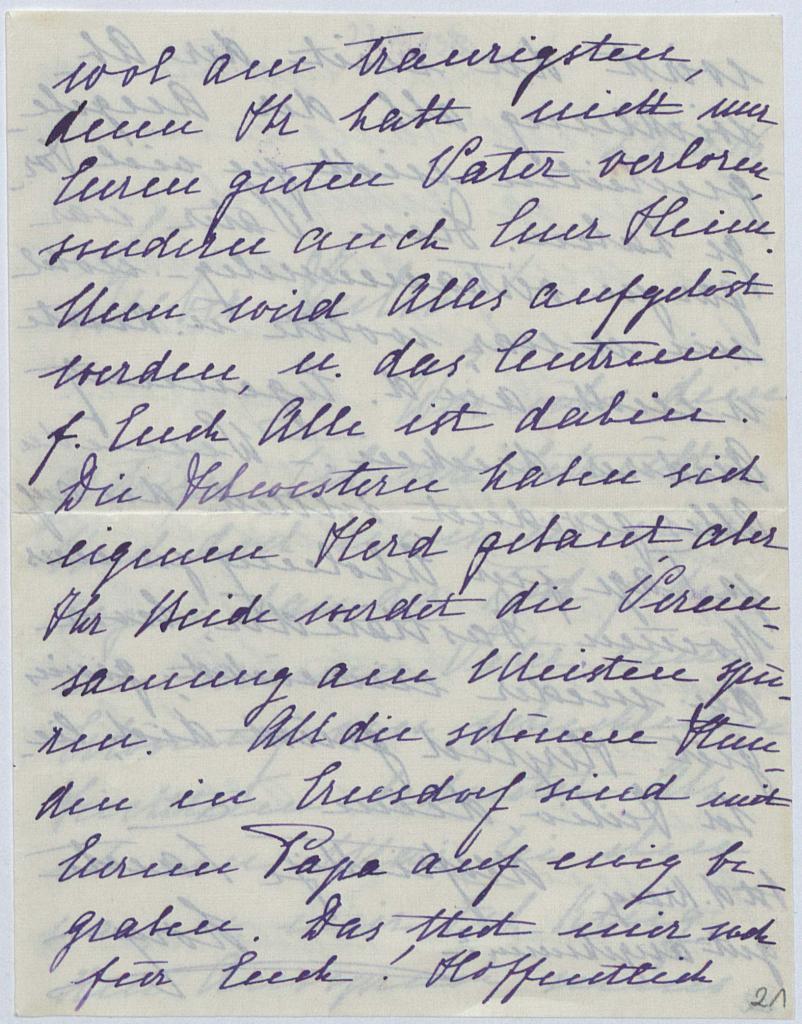 wol am traurigsten,
denn Ihr habt nicht nur
Euren guten Vater verloren,
sondern auch Euer Heim.
Nun wird Alles aufgelöst
werden, u. das Centrum
f. Euch Alle ist dahin.
Die Schwestern haben sich
eigenen Herd gebaut, aber
Ihr Beide werdet die Verein-
samung am Meisten spü-
ren. All die schönen Stun-
den in Ernsdorf sind mit
Eurem Papa auf ewig be-
graben. Das thut mir weh
für Euch! Hoffentlich
21